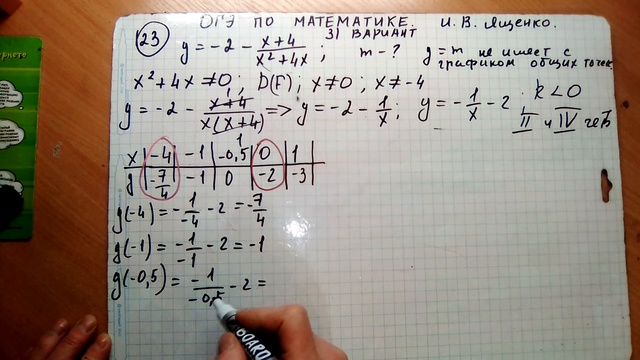 ОГЭ ПО МАТЕМАТИКЕ. И. В. Ященко.
31 ВАРИАНТ
23 y = -2 - x+4 / x²+4x ; m - ? y = m не имеет с
графиком общих точек.
x²+4x ≠ 0 ; D(F); x ≠ 0 ; x ≠ -4
y = -2 - x+4 / x(x+4) => y = -2 - 1/x ; y = -1/x - 2 ; k < 0
II и IV четв
x | -4 | -1 | -0,5 | 0 | 1 |
y | -7/4 | -1 | 0 | -2 | -3 |
y(-4) = -1/-4 - 2 = -7/4
y(-1) = -1/-1 - 2 = -1
y(-0,5) = -1/-0,5 - 2 =
BOARD